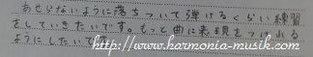 あせらないように落ちついて弾けるくらい練習
をしていきたいです。もっと曲に表現をつけれる
ようにしたいです。
http://www.harmonia-musik.com